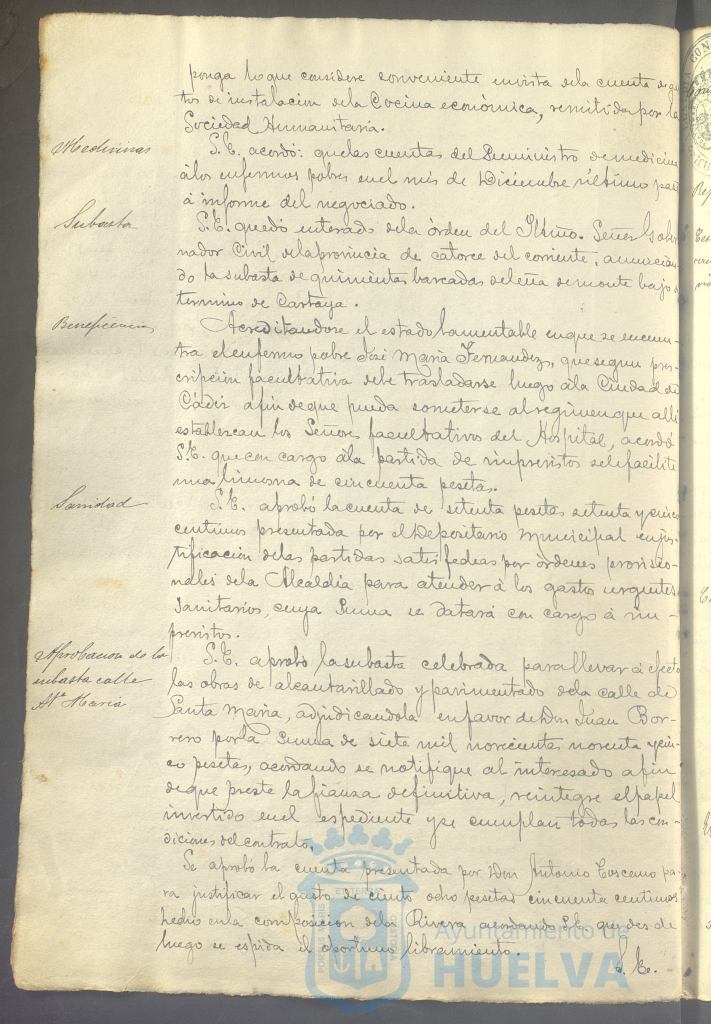 ponga lo que considere conveniente en vista de la cuenta de gas-
tos de instalacion de la Cocina económica, remitida por la
Sociedad Humanitaria.
Medicinas
S.E. acordó: que las cuentas del Suministro de medicinas
á los enfermos pobres en el mes de Diciembre último pase
á informe del negociado.
Subasta
S.E. quedó enterado de la órden del Iltmo. Señor Gober-
nador Civil de la provincia de catorce del corriente, anuncian-
do la subasta de quinientas barcadas de leña de monte bajo
termino de Cartaya.
Beneficencia
Acreditandose el estado lamentable en que se encuen-
tra el enfermo pobre José Maria Fernandez, que segun pres-
cripcion facultativa debe trasladarse luego á la Ciudad de
Cádiz afin de que pueda someterse al regimen que alli
establezcan los Señores facultativos del Hospital, acordó
S.E. que con cargo á la partida de imprevistos se le facilite
una limosna de cincuenta pesetas.
Sanidad
S.E. aprobó la cuenta de setenta pesetas setenta y cinco
centimos presentada por el Depositario Municipal en jus-
tificacion de las partidas satisfechas por órdenes provisio-
nales de la Alcaldia para atender á los gastos urgentes
Sanitarios, cuya suma se datará con cargo á im-
previstos.
Aprobacion de la
subasta calle
Sta. Maria
S.E. aprobó la subasta celebrada para llevar á efecto
las obras de alcantarillado y pavimentado de la calle de
Santa Maria, adjudicandola en favor de Don Juan Bor-
rero por la suma de siete mil novecientas noventa y cin-
co pesetas, acordando se notifique al interesado a fin
de que preste la fianza definitiva, reintegre el papel
invertido en el espediente y se cumplan todas las con-
diciones del contrato.
Se aprobó la cuenta presentada por Don Antonio Toscano pa-
ra justificar el gasto de ciento ocho pesetas cincuenta centimos
hecho en la composicion de la Rivera acordando S.E. que desde
luego se espida el oportuno libramiento.
S.E.
Ayuntamiento de
HUELVA